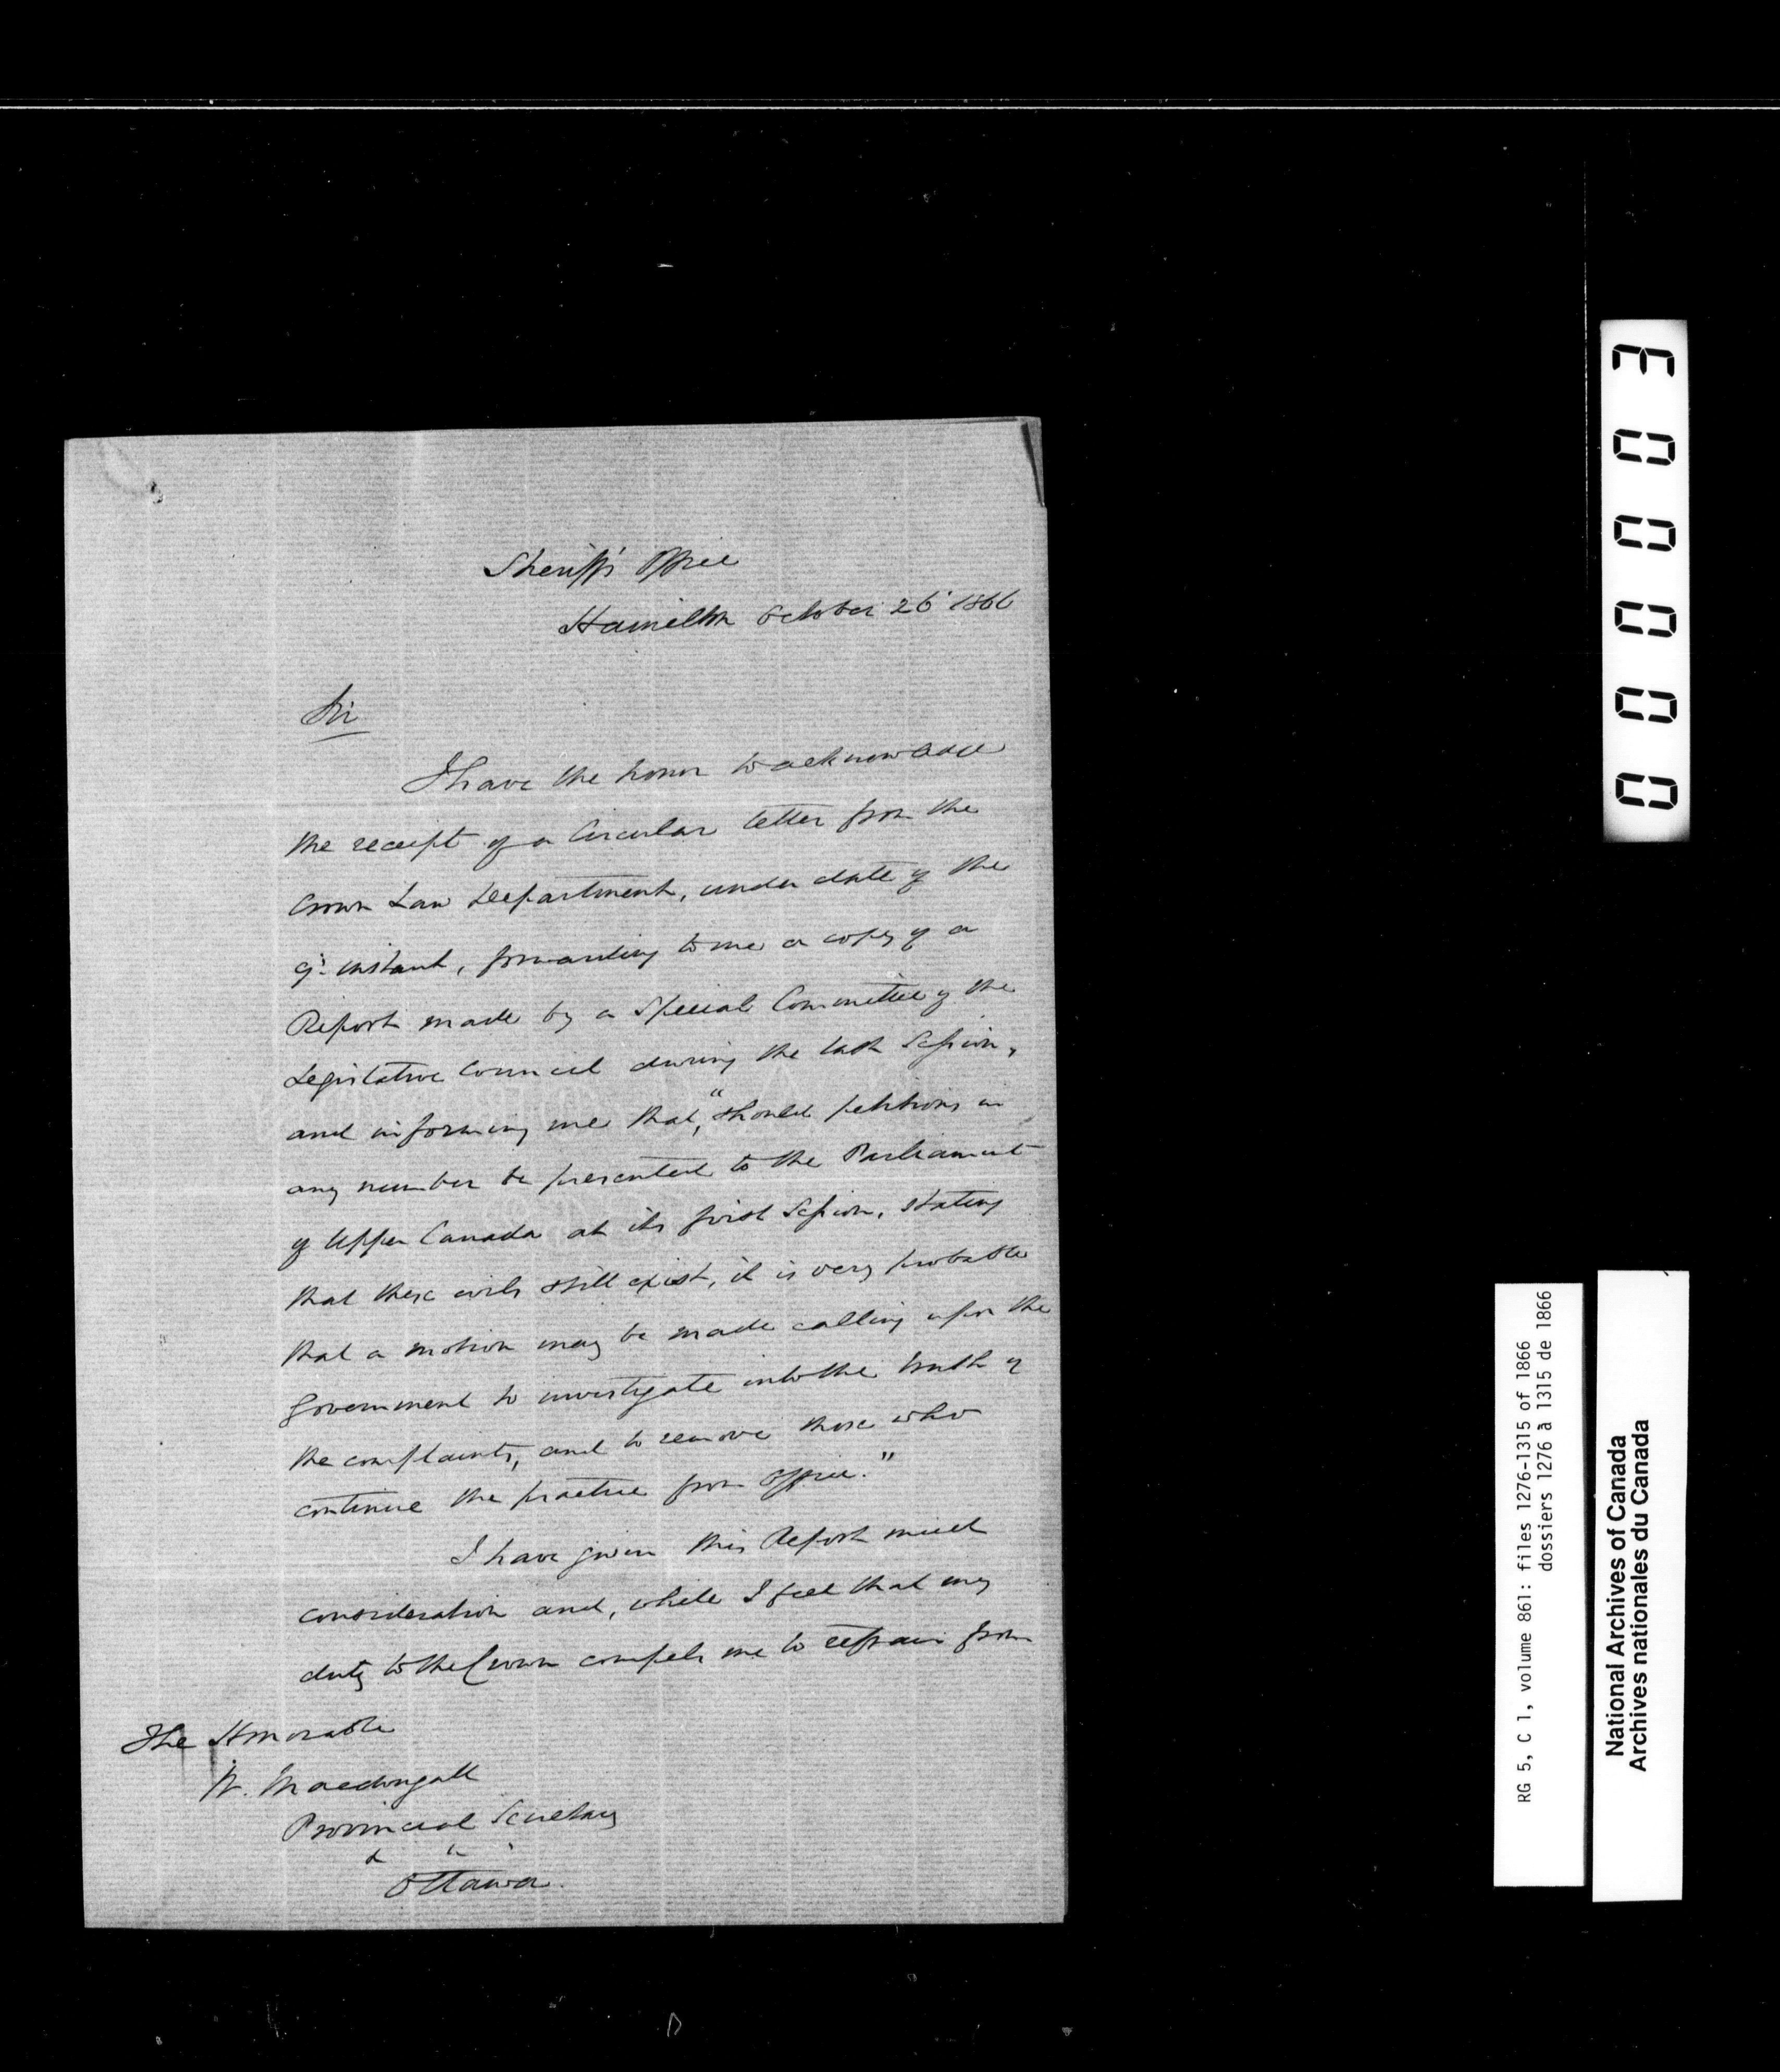 Sheriff's Office
Hamilton October 26' 1866
Sir
I have the honor to acknowledge
the receipt of a Circular letter from the
Crown Law Department, under date of the
9th instant, forwarding to me a copy of a
Report made by a Special Committee of the
Legislative Council during the last Session,
and informing me that, "should petitions in
any number be presented to the Parliament
of Upper Canada at its first Session, stating
that these evils still exist, it is very probable
that a motion may be made calling upon the
Government to investigate into the truth of
the complaints, and to remove those who
continue the practice from office."
I have given this Report much
consideration and, while I feel that my
duty to the Crown compels me to refrain from
The Honorable
W. Macdougall
Provincial Secretary
&c &c
Ottawa.
000003
RG 5, C 1, volume 861: files 1276-1315 of 1866
dossiers 1276 à 1315 de 1866
National Archives of Canada
Archives nationales du Canada